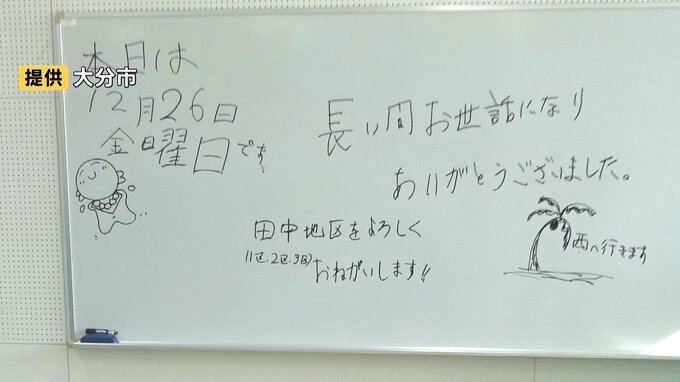 本日は
提供 大分市
12月26日
金曜日です
長い間お世話になり
ありがとうございました。
田中地区をよろしく
11区.2区.3区)
おねがいします!!
西へ行きます